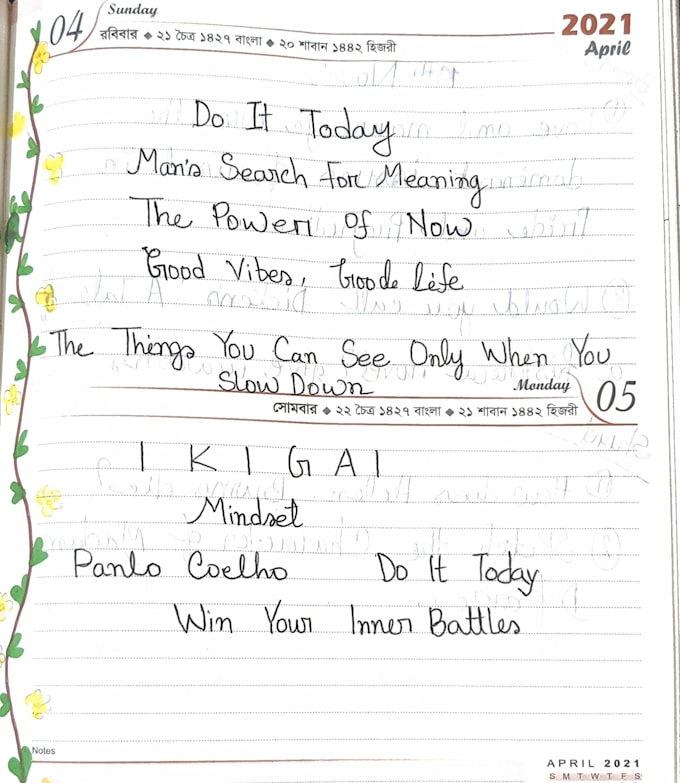 04 Sunday
রবিবার ◆ ২১ চৈত্র ১৪২৭ বাংলা ◆ ২০ শাবান ১৪৪২ হিজরী
2021
April
Do It Today
Man's Search for Meaning
The Power Of Now
Good Vibes, Goode Life
The Things You Can See Only When You
Slow Down
Monday 05
সোমবার ◆ ২২ চৈত্র ১৪২৭ বাংলা ◆ ২১ শাবান ১৪৪২ হিজরী
I K I G A I
Mindset
Panlo Coelho Do It Today
Win Your Inner Battles
Notes
APRIL 2021
S M T W T F S